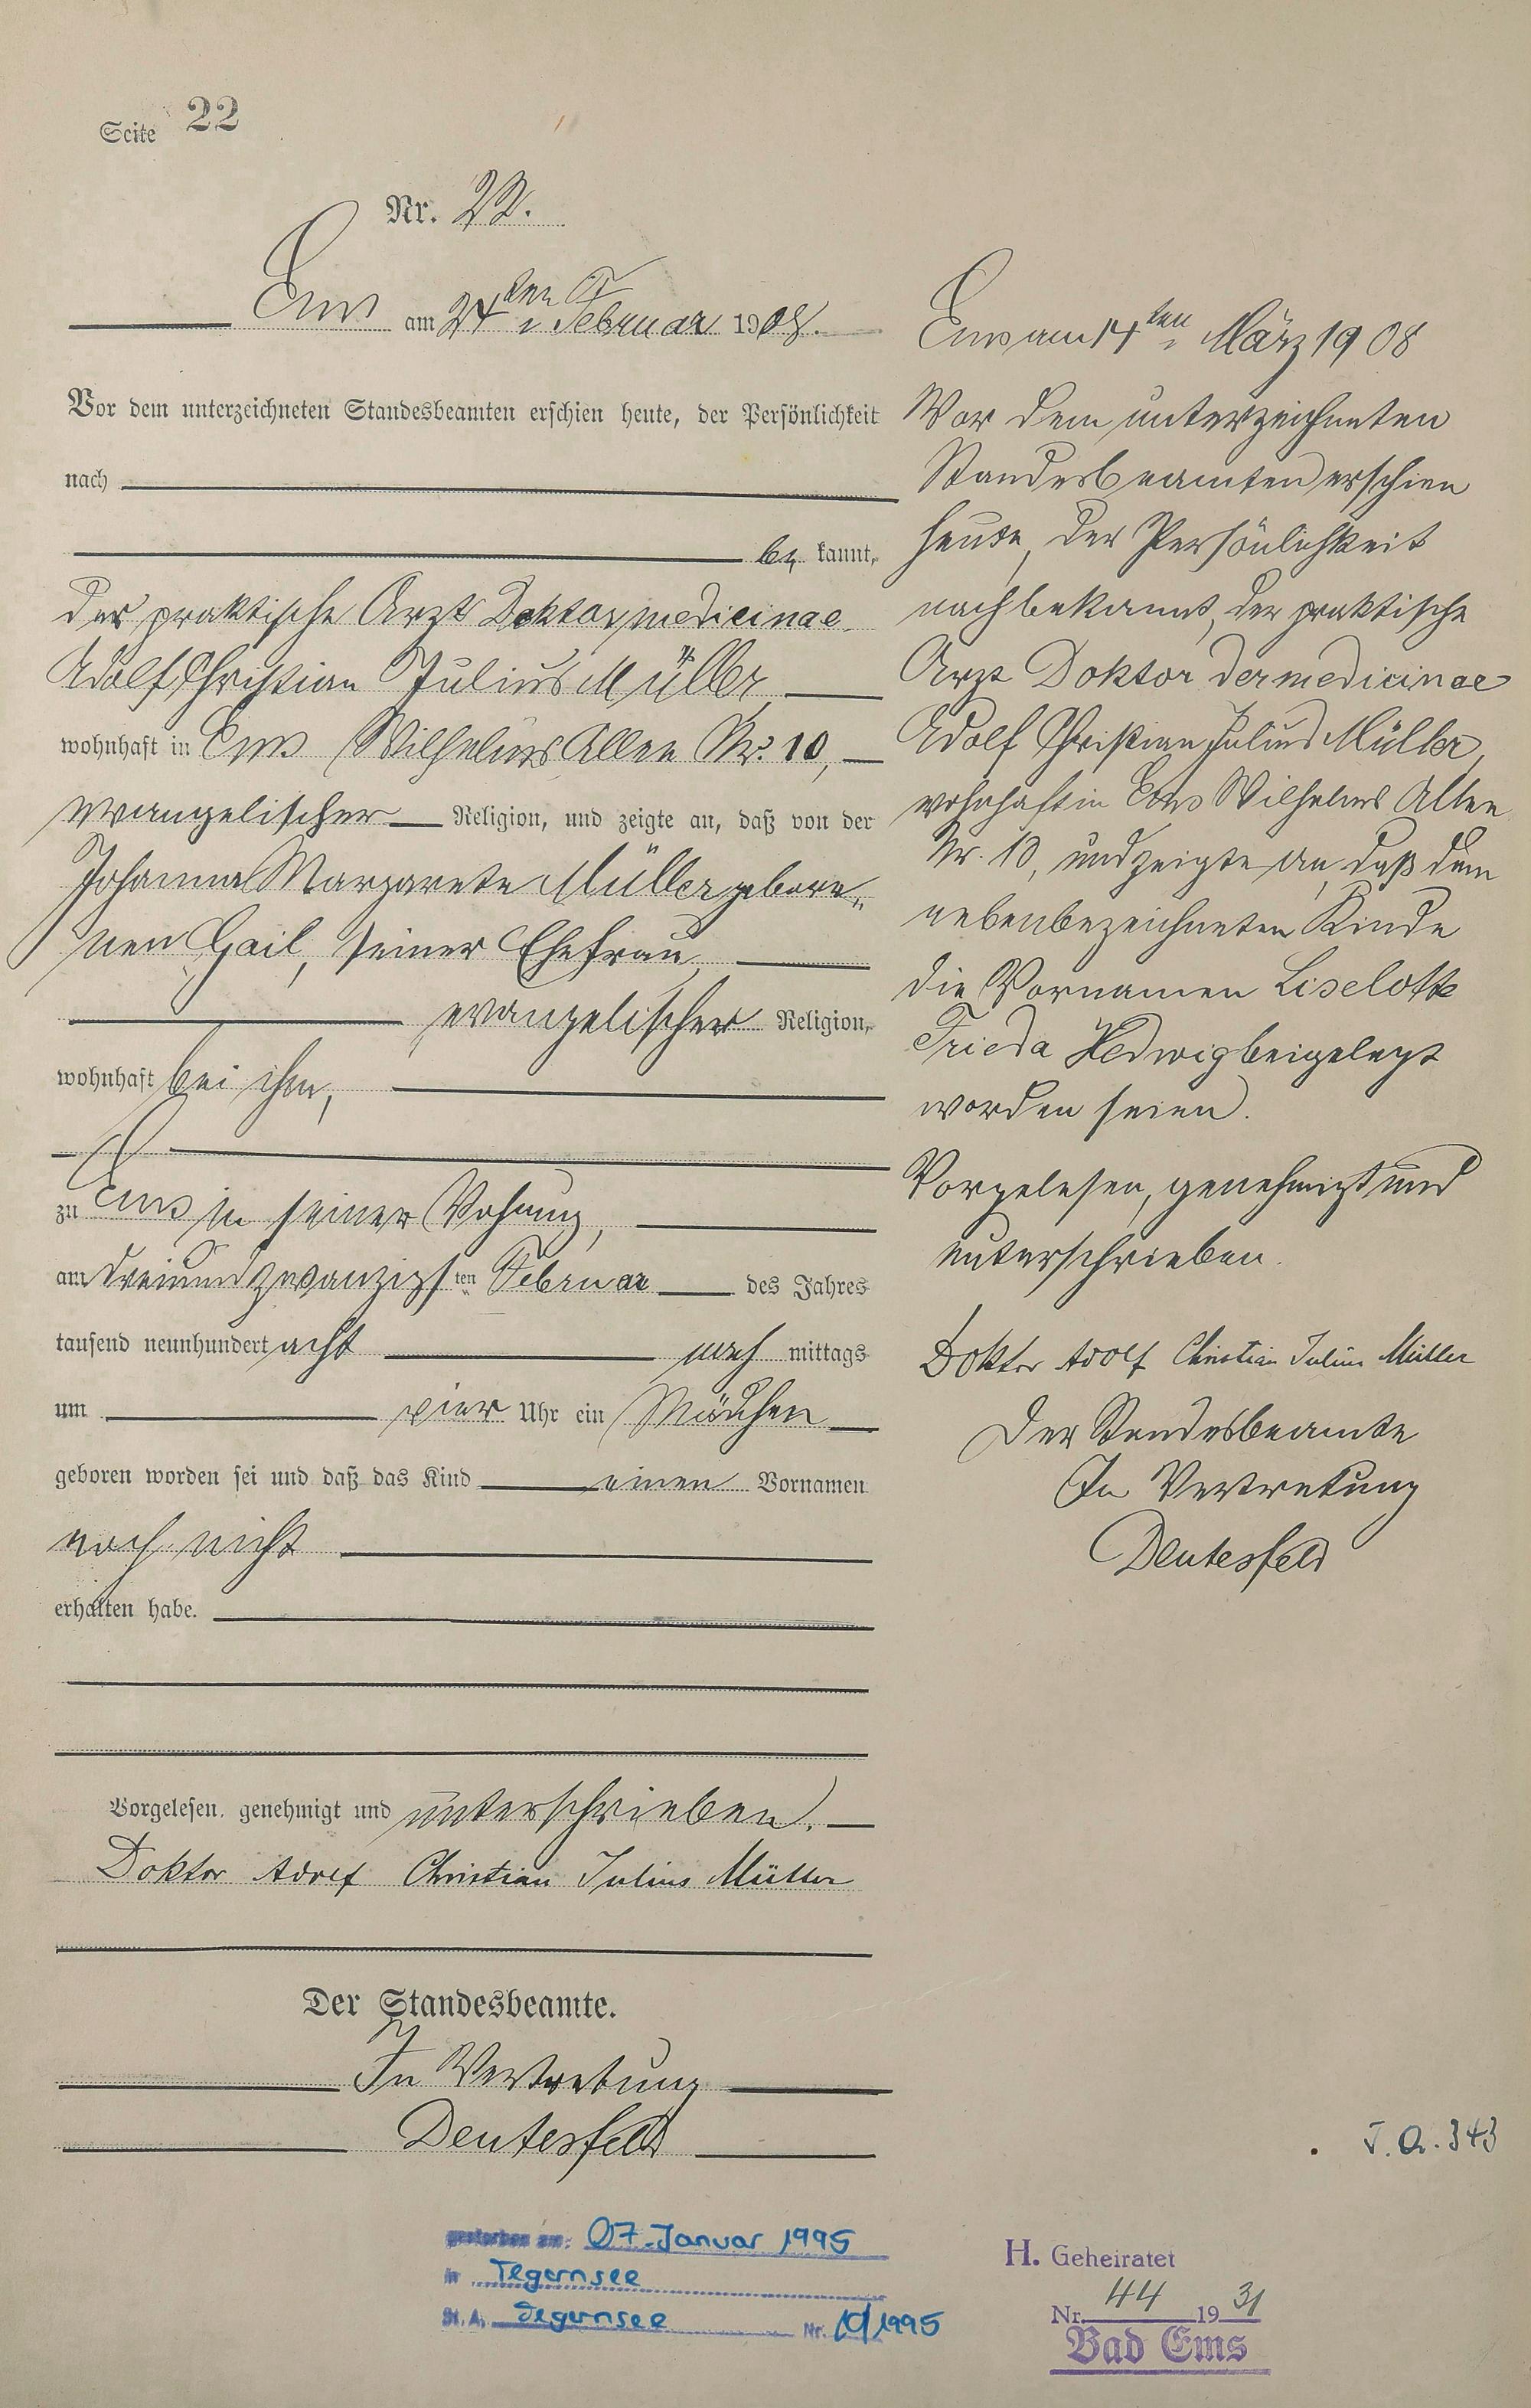 Seite 22
Nr. 22.
Ems am 24ten Februar 1908.
Vor dem unterzeichneten Standesbeamten erschien heute, der Persönlichkeit
nach
be kannt,
der praktische Arzt Doktor medicinae
Adolf Christian Julius Müller,
wohnhaft in Ems Wilhelms Allee Nr. 10,
evangelischer Religion, und zeigte an, daß von der
Johanna Margarete Müller gebore„
nen Gail, seiner Ehefrau,
evangelischer Religion,
wohnhaft bei ihm,
zu Ems in seiner Wohnung,
am dreiundzwanzigsten Februar des Jahres
tausend neunhundert acht nach mittags
um vier Uhr ein Mädchen
geboren worden sei und daß das Kind einen Vornamen
noch nicht
erhalten habe.
Vorgelesen, genehmigt und unterschrieben.
Doktor Adolf Christian Julius Müller
Der Standesbeamte.
In Vertretung
Deutesfeld
Ems am 14ten März 1908
Vor dem unterzeichneten
Standesbeamten erschien
heute, der Persönlichkeit
nach bekannt, der praktische
Arzt Doktor der medicinae
Adolf Christian Julius Müller,
wohnhaft in Ems Wilhelms Allee
Nr. 10, und zeigte an, daß dem
nebenbezeichneten Kinde
die Vornamen Liselotte
Frieda Hedwig beigelegt
worden seien.
Vorgelesen, genehmigt und
unterschrieben.
Doktor Adolf Christian Julius Müller
Der Standesbeamte
In Vertretung
Deutesfeld
J. A. 343
gestorben am: 07. Januar 1995
in Tegernsee
St. A. Tegernsee Nr. 10/1995
H. Geheiratet
Nr. 44 1931
Bad Ems